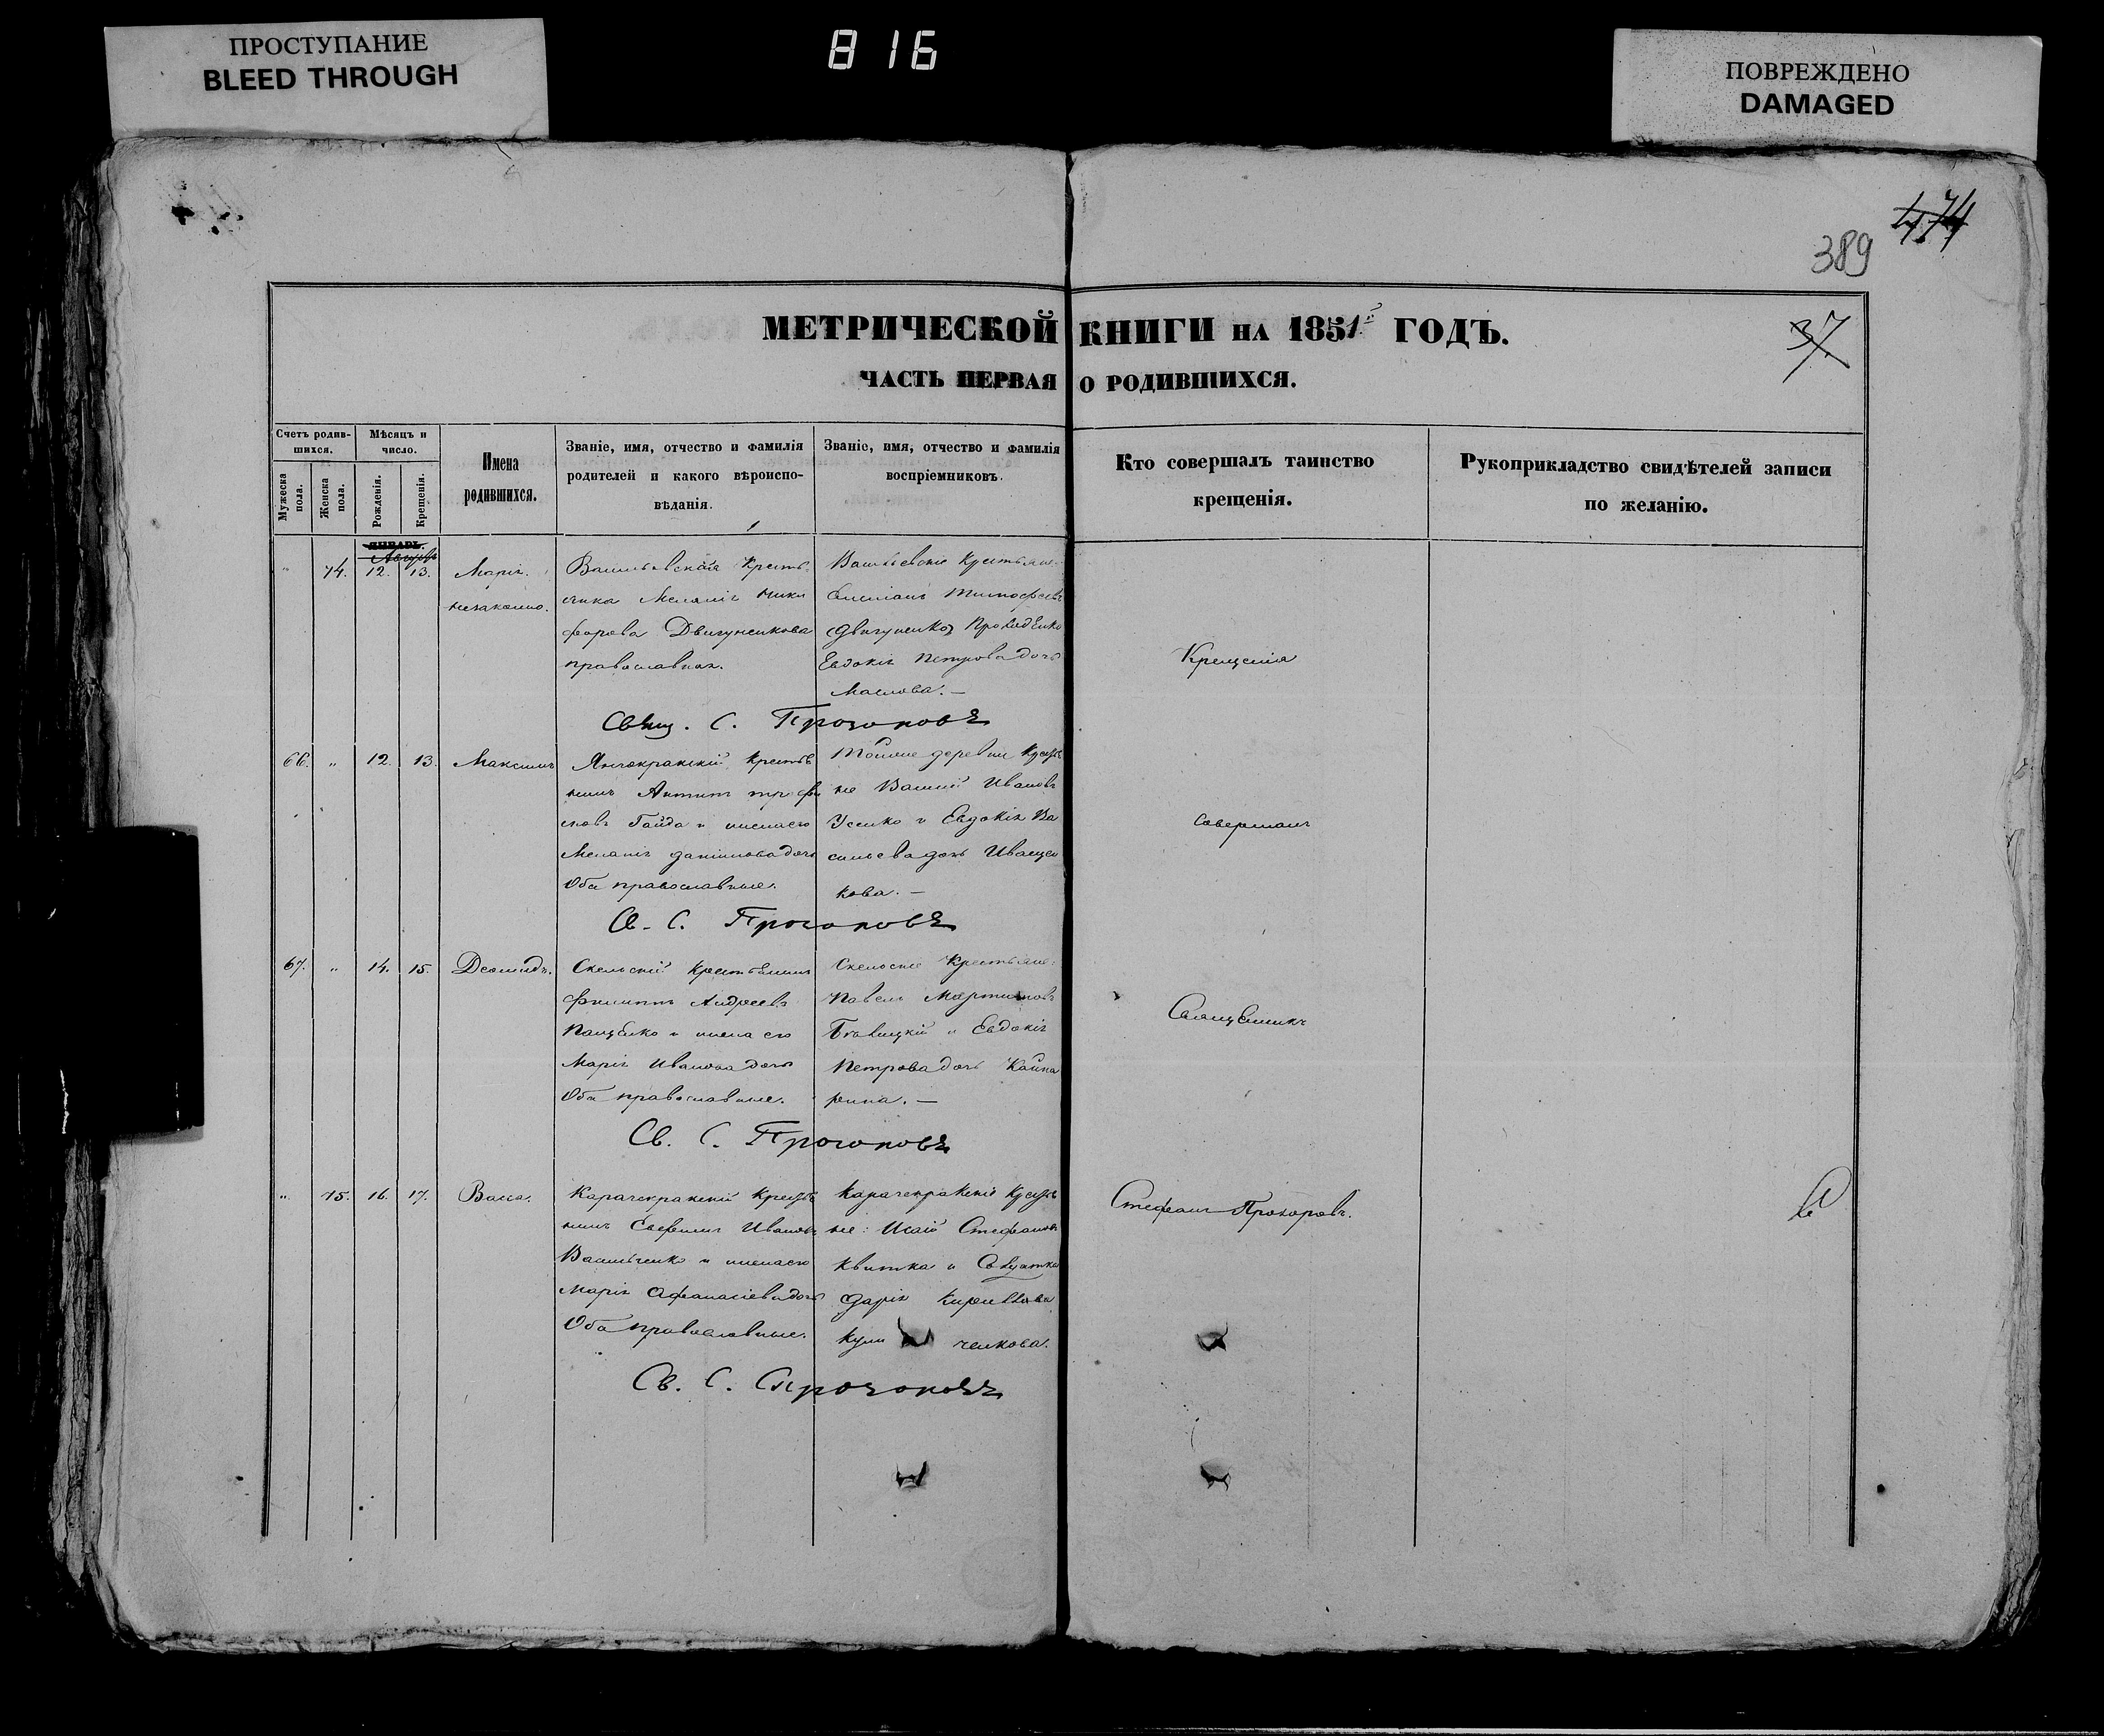 ПРОСТУПАНИЕ
BLEED THROUGH
816
ПОВРЕЖДЕНО
DAMAGED
474
389
37
МЕТРИЧЕСКОЙ КНИГИ НА 1851 ГОДЪ.
ЧАСТЬ ПЕРВАЯ О РОДИВШИХСЯ.
Счетъ родив-
шихся.
Мужеска пола.
Женска пола.
Мѣсяцъ и
число.
Рожденія.
Крещенія.
Имена
родившихся.
Званіе, имя, отчество и фамилія
родителей и какого вѣроиспо-
вѣданія.
Званіе, имя, отчество и фамилія
воспріемниковъ.
Кто совершалъ таинство
крещенія.
Рукоприкладство свидѣтелей записи
по желанію.
ЯНВАРЬ.
Августъ
" 74. 12. 13.
Марія.
незаконно.
Васильевская крестья
нка Меланія Ники
форова Двигунекова
православная.
Васильевскіе крестьяне
Тимофеевъ
Евдокія Петрова дочь
Маслова. —
Крещенія
Свящ. С. Прозоповъ
66. " 12. 13.
Максимъ
Янчокракскій крестья
нинъ Антипъ Трофи
мовъ Гайда и жена его
Меланія Даніилова дочь
Оба православные.
Тойже деревни крестья
не Василій Ивановъ
Усенко и Евдокія Ва
сильева дочь Иващен
кова. —
совершалъ
С. Прозоповъ
67. " 14. 15.
Деомидъ.
Скельскій крестьянинъ
Филиппъ Андреевъ
Пащенко и жена его
Марія Иванова дочь
Оба православные.
Скельскіе крестьяне:
Павелъ Мартиновъ
и Евдокія
Петрова дочь Кайна
рина. —
Священникъ
Св. С. Прозоповъ
" 75. 16. 17.
Васса.
Карачекракскій крестья
нинъ Ивановъ
Васильченко и жена его
Марія Афанасіева дочь
Оба православные.
Карачекракскіе крестья
не: Исаій Стефановъ
Квитка и
Дарія Кирилова
ченкова.
Стефанъ Прохоровъ.
Св. С. Прозоповъ